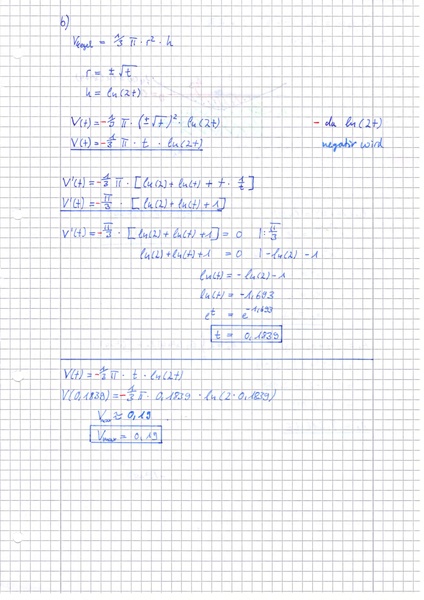 b)
V_Kegel = 1/3 π · r² · h
r = ±√t
h = ln(2t)
V(t) = -1/3 π · (±√t)² · ln(2t) - da ln(2t)
V(t) = -1/3 π · t · ln(2t) negativ wird
V'(t) = -1/3 π · [ln(2) + ln(t) + t · 1/t]
V'(t) = -π/3 · [ln(2) + ln(t) + 1]
V'(t) = -π/3 · [ln(2) + ln(t) + 1] = 0 | : π/3
ln(2) + ln(t) + 1 = 0 | - ln(2) - 1
ln(t) = - ln(2) - 1
ln(t) = -1,693
e^t = e^-1,693
t = 0,1839
V(t) = -1/3 π · t · ln(2t)
V(0,1839) = -1/3 π · 0,1839 · ln(2 · 0,1839)
V_max ≈ 0,19
V_max = 0,19